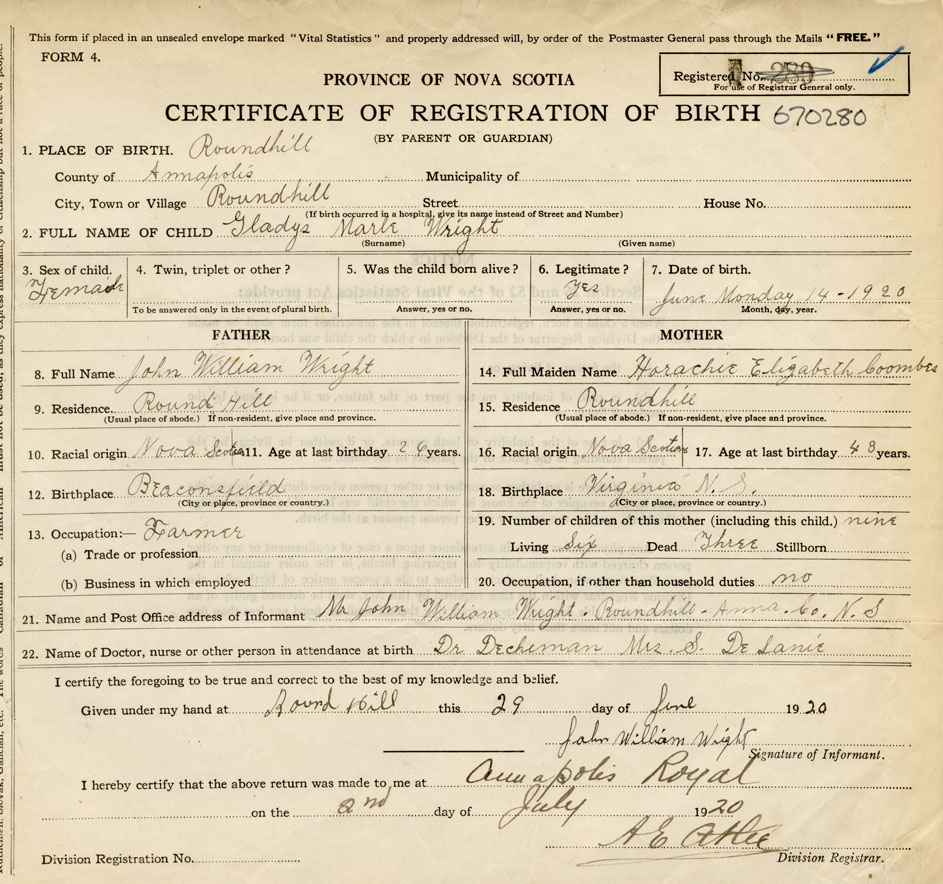 This form if placed in an unsealed envelope marked "Vital Statistics" and properly addressed will, by order of the Postmaster General pass through the Mails "FREE."
FORM 4.
Registered No. 289
For use of Registrar General only.
PROVINCE OF NOVA SCOTIA
CERTIFICATE OF REGISTRATION OF BIRTH 670280
(BY PARENT OR GUARDIAN)
1. PLACE OF BIRTH. Roundhill
County of Annapolis Municipality of
City, Town or Village Roundhill Street House No.
(If birth occurred in a hospital, give its name instead of Street and Number)
2. FULL NAME OF CHILD Gladys Marle Wright
(Surname) (Given name)
3. Sex of child. 4. Twin, triplet or other? 5. Was the child born alive? 6. Legitimate? 7. Date of birth.
Female Yes June Monday 14-1920
To be answered only in the event of plural birth. Answer, yes or no. Answer, yes or no. Month, day, year.
FATHER
8. Full Name John William Wright
9. Residence. Round Hill
(Usual place of abode.) If non-resident, give place and province.
10. Racial origin Nova Scotia 11. Age at last birthday years.
12. Birthplace Beaconsfield
(City or place, province or country.)
13. Occupation:— Farmer
(a) Trade or profession
(b) Business in which employed
MOTHER
14. Full Maiden Name Horachie Elizabeth Coombes
15. Residence Roundhill
(Usual place of abode.) If non-resident, give place and province.
16. Racial origin Nova Scotian 17. Age at last birthday 43 years.
18. Birthplace Virginia N.S.
(City or place, province or country.)
19. Number of children of this mother (including this child.) nine
Living Six Dead Three Stillborn
20. Occupation, if other than household duties no
21. Name and Post Office address of Informant Mr John William Wright. Roundhill-Anna. Co. N.S
22. Name of Doctor, nurse or other person in attendance at birth Dr Decheman Mrs. S. De Lanie
I certify the foregoing to be true and correct to the best of my knowledge and belief.
Given under my hand at Round Hill this 29 day of June 1920
John William Wright
Signature of Informant.
I hereby certify that the above return was made to me at Annapolis Royal
on the 2nd day of July 1920
A E Atlee
Division Registration No. Division Registrar.